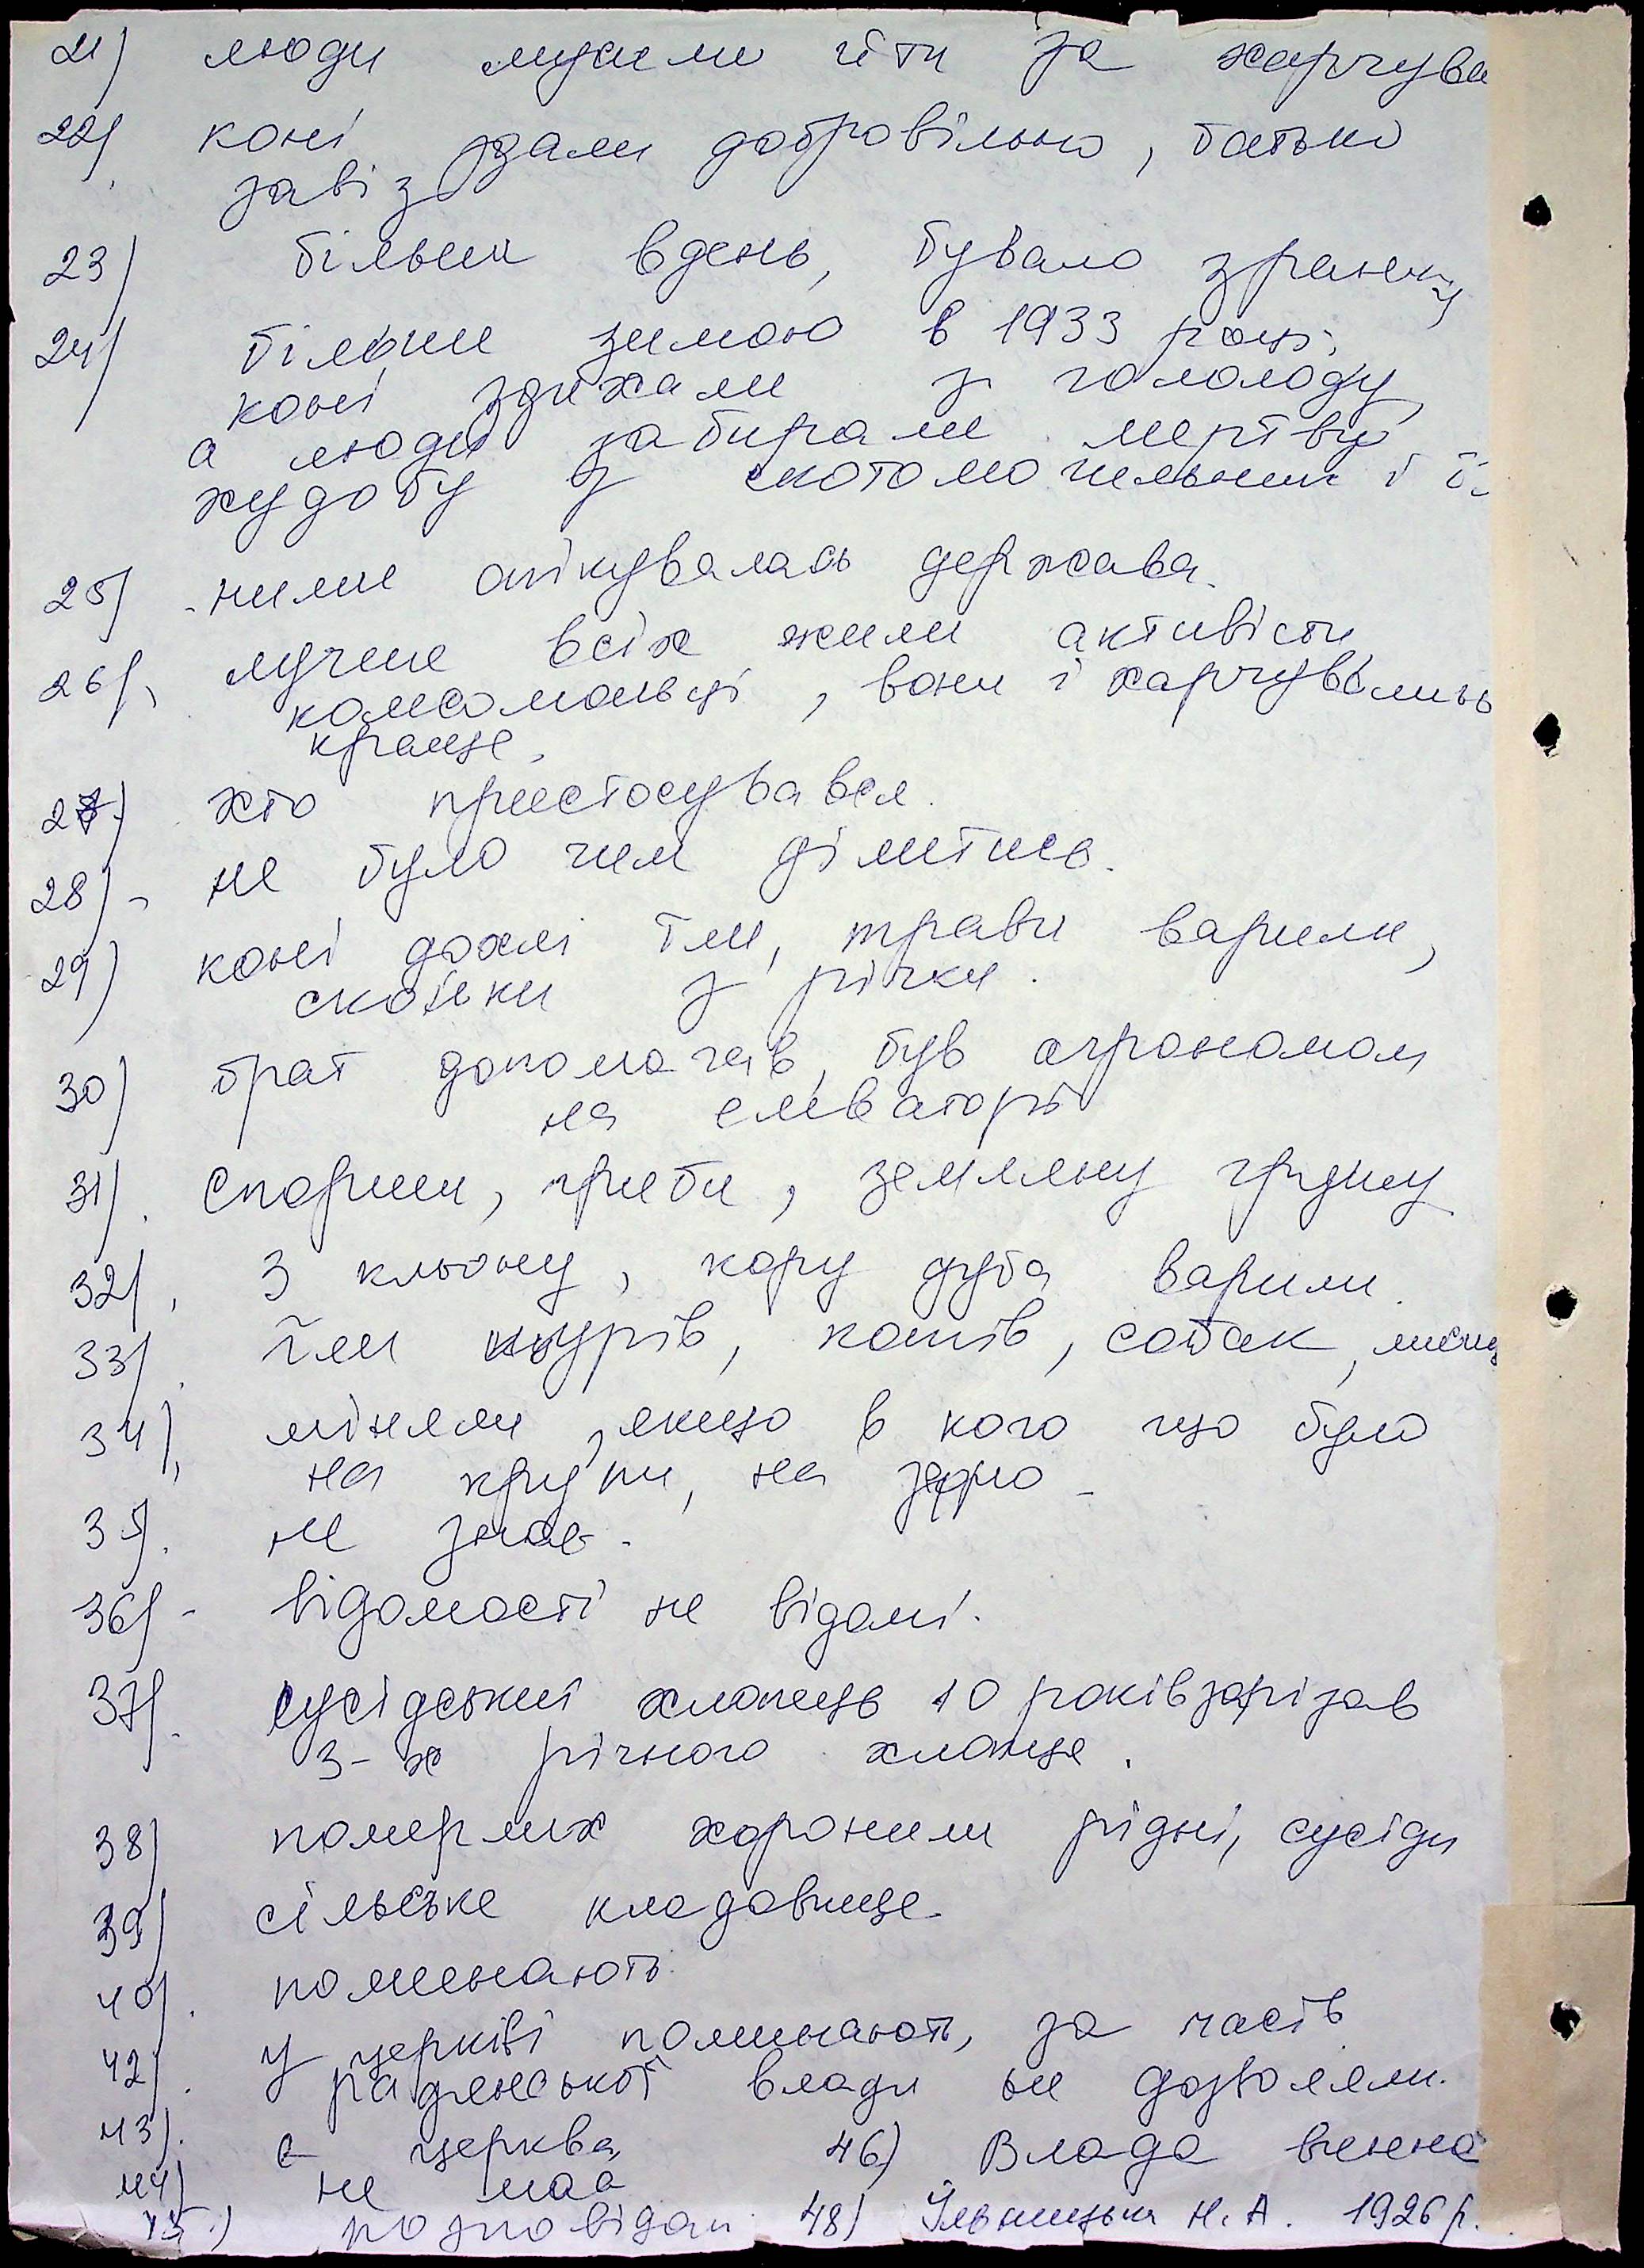 21) люди мусили іти за харчува
22) коні здали добровільно, батько
завіз
23) більш вдень, бувало зранку
24) більше зимою в 1933 році.
коні здихали з гололоду,
а люди забирали мертву
худобу з скотомогильник і ї
25) ними опікувалась держава.
26) лучше всіх жили активісти,
комсомольці, вони і харчувались
краще.
27) хто пристосувався.
28) не було чим ділитись.
29) коні дохлі їли, трави варили,
скойки з річки.
30) брат допомагав, був агрономом
на елеваторі
31) Спориш, гриби, земляну грушу
32) З кльону, кору дуба варили.
33) їли щурів, котів, собак,
34) міняли, якщо в кого що було
на крупи, на зерно
35) не знає.
36) відомості не відомі.
37) сусідський хлопець 10 років зарізав
3-х річного хлопця.
38) померлих хоронили рідні, сусіди
39) сільське кладовище
40) поминають
42) у церкві поминають, за часів
радянської влади не дозволяли.
43) є церква 46) Влада винна
44) не має
45) розповідали 48) Ільницька Н. А. 1926 р.